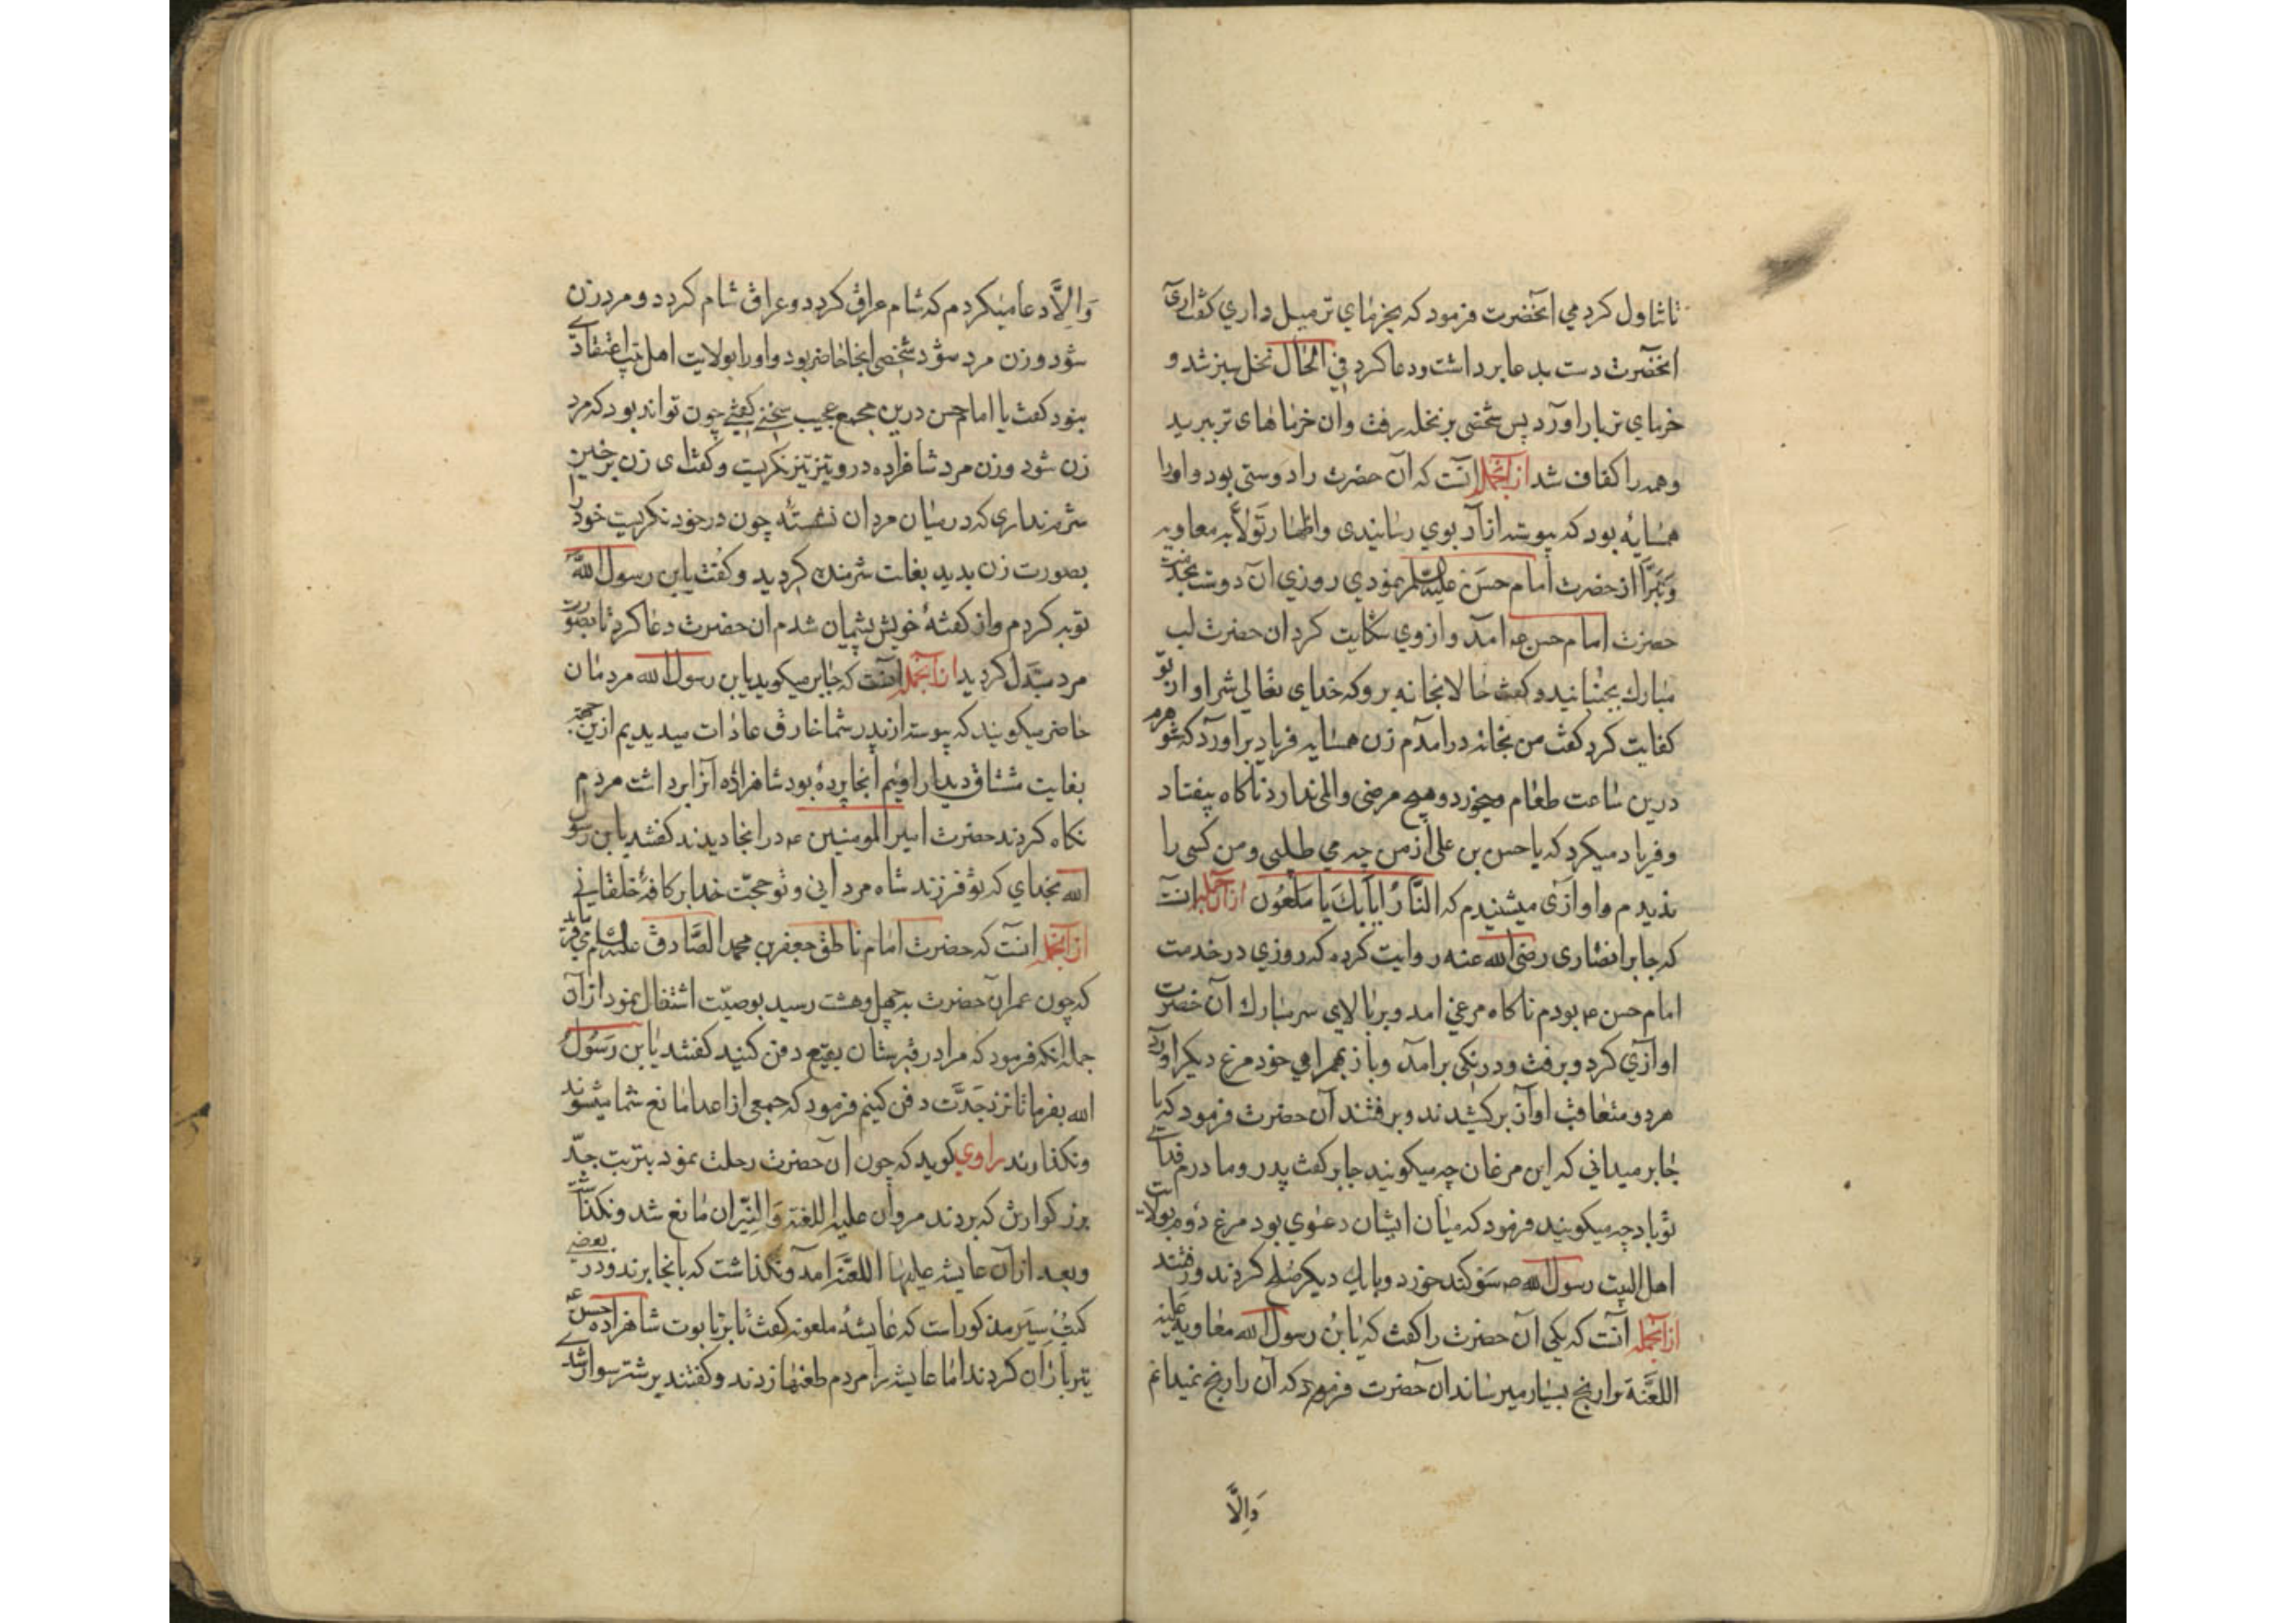 تا تناول کردمی انحضرت فرمود که بخرمای تر میل داری گفت اری
انحضرت دست بدعا برداشت و دعا کرد فی الحال نخل سبز شد و
خرمای تر بار اورد پس شخصی بر نخله رفت و ان خرماهای تر ببرید
و همه را کفاف شد ازآنجمله انست که آن حضرت را دوستی بود و اورا
همسایهٔ بود که پیوسته ازار بوی رسانیدی و اظهار تولّا به معاویه
و تبرّا از حضرت امام حسن علیه السلم نمودی روزی ان دوست بخدمت
حضرت امام حسن ع امد و از وی شکایت کرد ان حضرت لب
مبارك بجنبانید و کفت حالا بخانه برو که خدای تعالی شر او از تو
کفایت کرد کفت من بخانه درامدم زن همسایه فریاد براورد که شوهرم
درین ساعت طعام میخورد و هیچ مرضی و المی ندارد ناکاه بیفتاد
و فریاد میکرد که یا حسن بن علی از من چه می طلبی و من کسی را
ندیدم و اوازی میشنیدم که النّارُ ایابكَ یا ملعُون ازآن جمله انست
که جابر انصاری رضی الله عنه روایت کرده که روزی در خدمت
امام حسن ع بودم ناکاه مرغی امد و بر بالای سر مبارك آن حضرت
اوازی کرد و برفت و درنکی برامد و باز بهمراهی خود مرغ دیکر اورد
هر دو متعاقب اواز برکشیدند و برفتند آن حضرت فرمود که یا
جابر میدانی که این مرغان چه میکویند جابر کفت پدر و مادرم فدای
تو باد چه میکویند فرمود که میان ایشان دعوی بود مرغ دوم بولایت
اهل البیت رسول الله ص سوکند خورد و با یك دیکر صلح کردند و رفتند
ازآنجمله آنست که یکی آن حضرت را کفت که یا بن رسول الله معاویه علیه
اللعنة ترا رنج بسیار میرساند آن حضرت فرمود که آن را رنج نمیدانم
وَاِلّا
وَاِلّا دعا میکردم که شام عراق کردد و عراق شام کردد و مرد زن
شود و زن مرد شود شخصی انجا حاضر بود و اورا بولایت اهل بیت اعتقادی
نبود کفت یا امام حسن درین مجمع عجیب سخنی کفتی چون تواند بود که مرد
زن شود و زن مرد شاهزاده درو تیز تیز نکریست و کفت ای زن برخیز
شرم نداری که در میان مردان نشستهٔ چون در خود نکریست خود را
بصورت زن بدید بغایت شرمنده کردید و کفت یا بن رسول الله
توبه کردم و از کفتهٔ خویش پشیمان شدم ان حضرت دعا کرد تا بصورت
مرد مبدّل کردید ازآنجمله آنست که جابر میکوید یا بن رسول الله مردمان
حاضر میکویند که پیوسته از پدر شما خارق عادات میدیدیم ازین جهة
بغایت مشتاق دیدار اوییم انجا پردهٔ بود شاهزاده آنرا برداشت مردم
نکاه کردند حضرت امیر المومنین ع در انجا دیدند کفتند یا بن رسول
الله بخدای که تو فرزند شاه مردانی و تو حجّت خدا بر کافهٔ خلقانی
ازآنجمله انست که حضرت امام ناطق جعفر بن محمد الصّادق علیه السلام می فرماید
که چون عمر آن حضرت بچهل و هشت رسید بوصیّت اشتغال نمود از آن
جمله انکه فرمود که مرا در قبرستان بقیع دفن کنید کفتند یا بن رَسُول
الله بفرما تا نزد جَدَّت دفن کنیم فرمود که جمعی از اعدا مانع شما میشوند
و نکذارند راوی کوید که چون ان حضرت رحلت نمود بتربت جدّ
بزرکوارش که بردند مروان علیه اللعنة وَالنّیران مانع شد و نکذاشت
و بعد ازآن عایشه علیها اللعنَة امد و نکذاشت که بانجا برند و در بعضی
کتُب سیَر مذکور است که عایشهٔ ملعونه کفت تا بر تابوت شاهزاده حسن ع
تیر باران کردند اما عایشه را مردم طعنها زدند و کفتند بر شتر سوار شدی